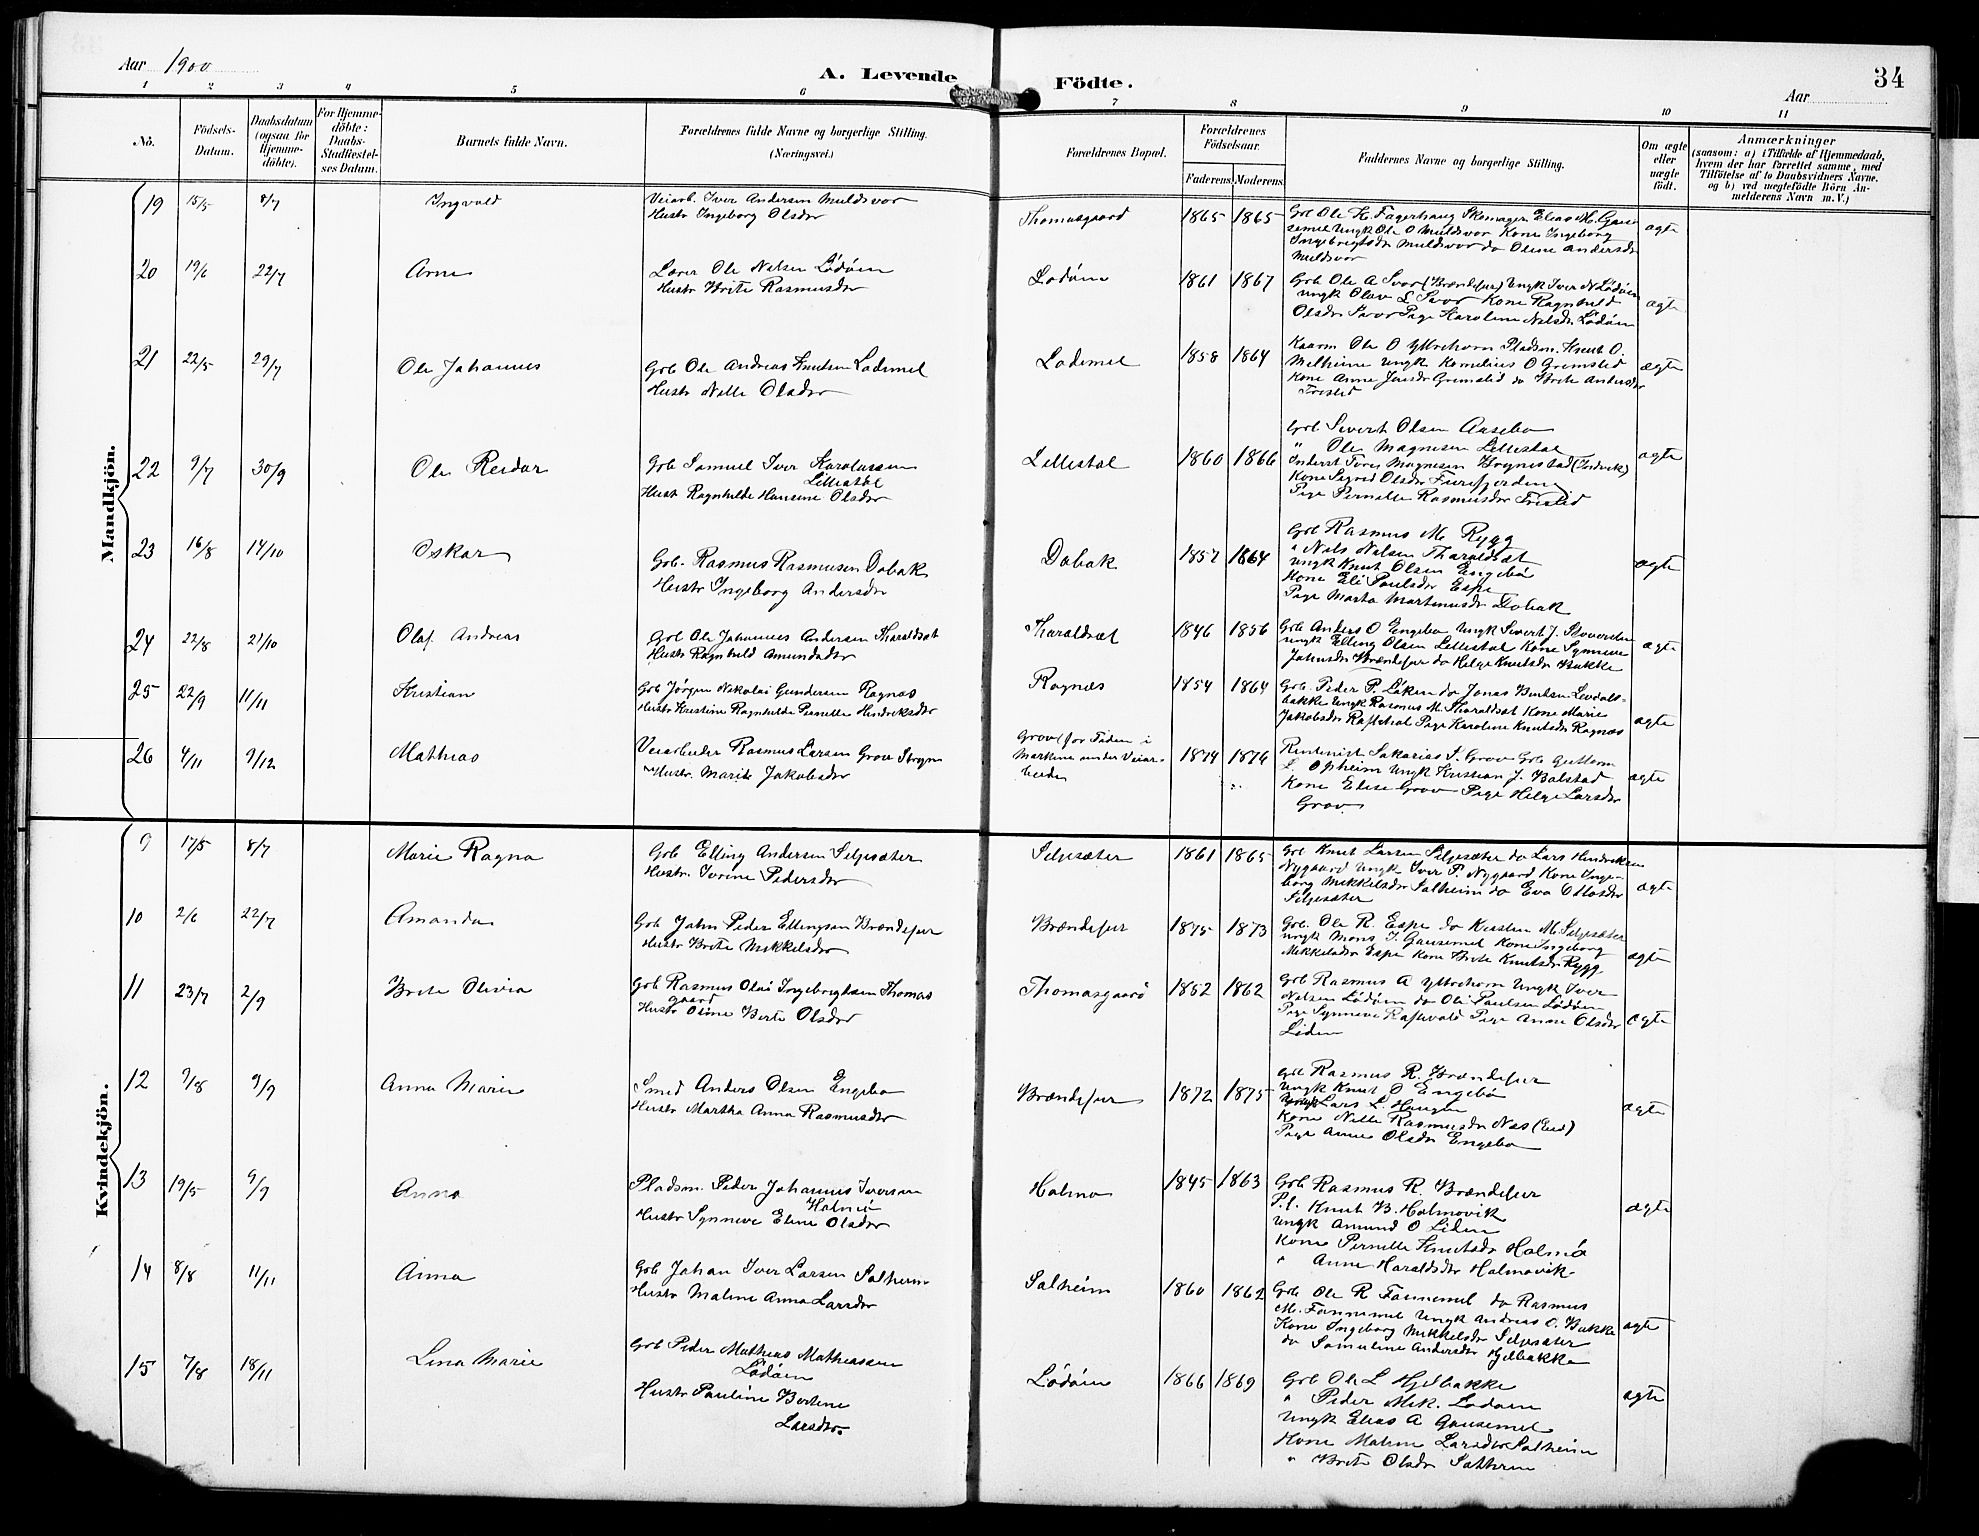 Aar 1900
A. Levende Födte.
Aar
34
1 2 3 4 5 6 7 8 9 10 11
No.
Födsels-Datum.
Daabsdatum (ogsaa for Hjemme-döbte).
For Hjemme-döbte: Daabs-Stadfæstel-ses Datum.
Barnets fulde Navn.
Forældrenes fulde Navne og borgerlige Stilling.
(Næringsvei.)
Forældrenes Bopæl.
Forældrenes Födselsaar.
Faderens Moderens
Faddernes Navne og borgerlige Stilling.
Om ægte eller uægte födt.
Anmærkninger
(saasom: a) i Tilfælde af Hjemmedaab, hvem der har forrettet samme, med Tilföielse af to Daabsvidners Navne, og b) ved uægtefödte Börn Anmelderens Navn m. V.)
Mandkjön.
19 15/5 8/7 Ingvald
Veiarb. Iver Andersen Muldsvor
Hustr Ingeborg Olsdr
Thomasgaard 1865 1865
Gbr Ole K. Fagerhaug Skomager Elias M. Gausemel Ungk Ole O Muldsvor Kone Ingeborg
Ingebrigtsdr Muldsvor do Oline Andersdr
Muldsvor
ægte
20 19/6 22/7 Arne
Lærer Ole Nilsen Lödöen
Hustr Brite Rasmusdr
Lödöen 1861 1867
Grb Ole A Svor (Brændefur) Ungk Iver N Lödöen
Ungk Olav L Svor Kone Ragnhild
Olsdr Svor Pige Karoline Nilsdr Lödöen
ægte
21 22/5 29/7 Ole Johannes
Grb Ole Andreas Knutsen Lodemel
Hustr Nille Olsdr
Lodemel 1858 1864
Kaarm Ole O Yttrehorn Pladsm. Knut O.
Melheim Ungk Kornelius O Grimslid
Kone Anne Jensdr Grimslid do Brite Andersdr
Frislid
ægte
22 9/7 30/9 Ole Reidar
Grb Samuel Iver Karolussen
Lillestöl
Hust Ragnhilde Hansine Olsdr
Lillestöl 1860 1866
Grb Sivert Olsen Aasebø
" Ole Magnesen Lillestöl
Inderst Tores Magnesen Brynestad (Indvik)
Kone Sigrid Olsdr Furefjorden
Pige Pernille Rasmusdr Frislid
ægte
23 16/8 14/10 Oskar
Grb. Rasmus Rasmusen Dobak
Hustr Ingeborg Andersdr
Dobak 1857 1864
Grb Rasmus M. Rygg
" Nils Nilsen Tharaldsæt
Ungk Knut Olsen Engebö
Kone Eli Paulsdr Espe
Pige Marta Martinusdr Dobak
ægte
24 22/8 21/10 Olaf Andreas
Grb Ole Johannes Andersen Tharaldsæt
Hustr Ragnhild Amundsdr
Tharaldsæt 1846 1856
Grb Anders O Engebø Ungk Sivert J.
Ungk Elling Olsen Lillestøl Kone Synneve
Johnsdr Brændefur do Helge Knutsdr Bakke
ægte
25 22/9 11/11 Kristian
Grb Jörgen Nikolai Gundersen Ragnæs
Hustr Kristine Ragnhilde Pernille Hendriksdr
Ragnæs 1854 1864
Grb. Peder P. Löken do Jonas Bentsen Levdals-
bakke Ungk Rasmus M. Tharaldsæt Kone Marie
Jakobsdr Raftevol Pige Karoline Knutsdr Ragnæs
ægte
26 4/11 9/12 Mathias
Veiarbeider Rasmus Larsen Grov Stryn
Hustr. Marie Jakobsdr
Grov (for Tiden i
Markene under Veiar-
beide) 1874 1876
Rentenist Sakarias S. Grov Grb Guttorm
L. Opheim Ungk Kristian J. Bolstad
Kone Elise Grov Pige Helge Larsdr
Grov
ægte
Kvindekjön.
9 17/5 8/7 Marie Ragna
Grb Elling Andersen Seljesæter
Hustr. Iverine Pedersdr
Seljesæter 1861 1865
Grb Knut Larsen Seljesæter do Lars Hendriksen
Nygaard Ungk Iver P. Nygaard Kone Inge-
borg Mikkelsdr Salheim do Eva Ottosdr
Seljesæter
ægte
10 2/6 22/7 Amanda
Grb John Peder Ellingsen Brændefur
Hustr Brite Mikkelsdr
Brændefur 1875 1873
Grb. Ole R. Espe do Kristen M. Seljesæter
Ungk Mons J. Gausemel Kone Ingeborg
Mikkelsdr Espe Kone Brite Knutsdr Rygg
ægte
11 23/7 2/9 Brite Olivia
Grb Rasmus Olai Ingebrigtsen Thomas
gaard
Hustr Oline Berte Olsdr
Thomasgaard 1852 1862
Grb Rasmus A Yttrehorn Ungk Iver
Nilsen Lödöen do Ole Paulsen Lödöen
Pige Synneve Raftevold Pige Anne Olsdr
Liden
ægte
12 7/8 9/9 Anna Marie
Smed Anders Olsen Engebø
Hustr Martha Anna Rasmusdr
Brændefur 1872 1875
Grb Rasmus R. Brændefur
Ungk Knut O Engebö
Ungk Lars L. Haugen
Kone Nille Rasmusdr Næs (Eid)
Pige Anne Olsdr Engebø
ægte
13 19/5 9/9 Anna
Pladsm. Peder Johannes Iversen
Holmö
Hustr Synneve Eline Olsdr
Holmø 1845 1863
Grb Rasmus R. Brændefur
P.l. Knut B. Holmøvik
Ungk Amund O Liden
Kone Pernille Knutsdr Holmö
" Anne Haraldsdr Holmøvik
ægte
14 8/8 11/11 Anna
Grb Johan Iver Larsen Salheim
Hustr Maline Anna Larsdr
Salheim 1860 1862
Grb Ole R Fannemel do Rasmus
M. Fannemel Ungk Andreas O. Bakke
Kone Ingeborg Mikkelsdr Seljesæter
do Samuline Andersdr Hjelbakke
ægte
15 7/8 18/11 Lina Marie
Grb Peder Mathias Mathiassen
Lödöen
Hustr Pauline Bertine
Larsdr
Lödöen 1866 1869
Grb Ole L Hjelbakke
" Peder Mik. Lödöen
Ungk Elias A Gausemel
Kone Maline Larsdr Salheim
" Brite Olsdr Salheim
ægte